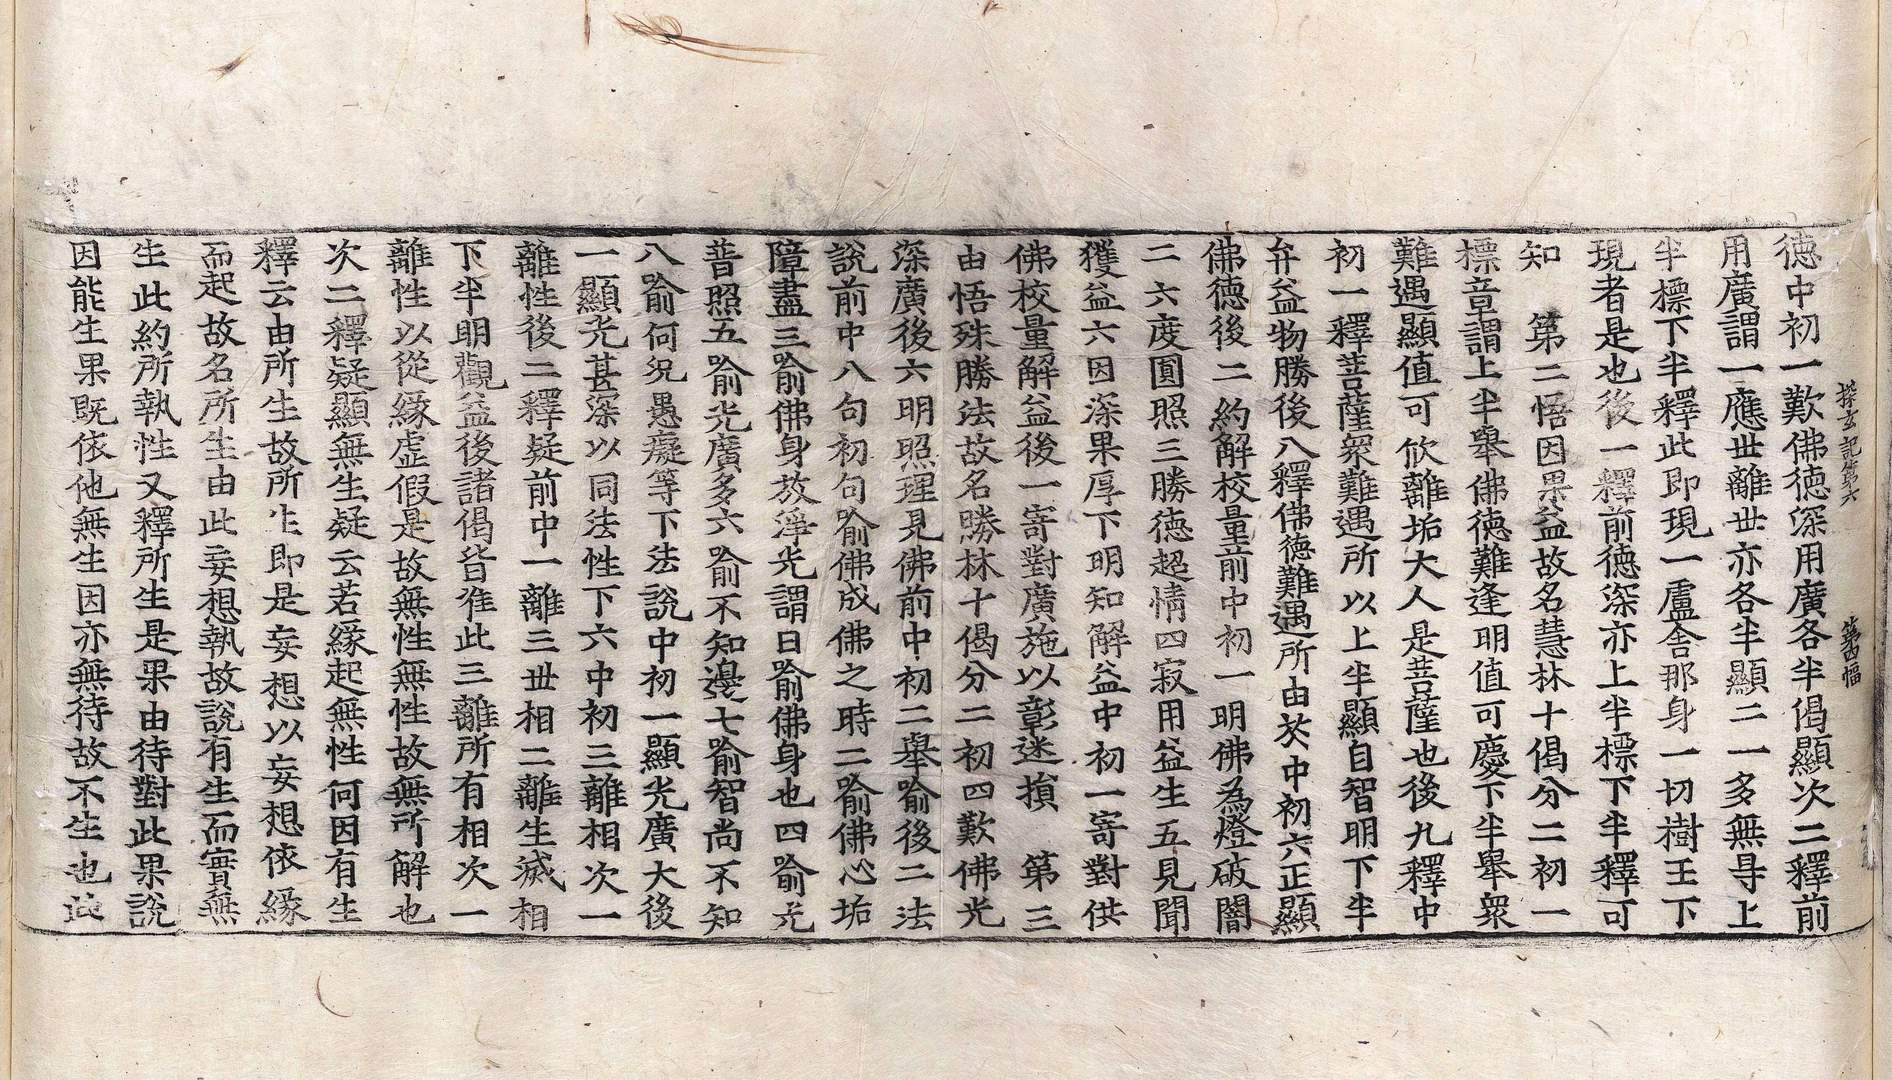 探玄記第六　第四幅
德中初一歎佛德深用廣各半偈顯次二釋前
用廣謂一應世離世亦各半顯二一多無㝵上
半標下半釋此即現一盧舍那身一切樹王下
現者是也後一釋前德深亦上半標下半釋可
知　第二悟因果益故名慧林十偈分二初一
標章謂上半舉佛德難逢明值可慶下半舉衆
難遇顯值可欣離垢大人是菩薩也後九釋中
初一釋菩薩衆難遇所以上半顯自智明下半
弁益物勝後八釋佛德難遇所由於中初六正顯
佛德後二約解校量前中初一明佛為燈破闇
二六度圓照三勝德超情四寂用益生五見聞
獲益六因深果厚下明知解益中初一寄對供
佛校量解益後一寄對廣施以彰迷損　第三
由悟殊勝法故名勝林十偈分二初四歎佛光
深廣後六明照理見佛前中初二舉喻後二法
說前中八句初句喻佛成佛之時二喻佛心垢
障盡三喻佛身放淨光謂日喻佛身也四喻光
普照五喻光廣多六喻不知邊七喻智尚不知
八喻何況愚癡等下法說中初一顯光廣大後
一顯光甚深以同法性下六中初三離相次一
離性後二釋疑前中一離三世相二離生滅相
下半明觀益後諸偈皆准此三離所有相次一
離性以從緣虛假是故無性無性故無所解也
次二釋疑顯無生疑云若緣起無性何因有生
釋云由所生故所生即是妄想以妄想依緣
而起故名所生由此妄想執故說有生而實無
生此約所執性又釋所生是果由待對此果說
因能生果既依他無生因亦無待故不生也此